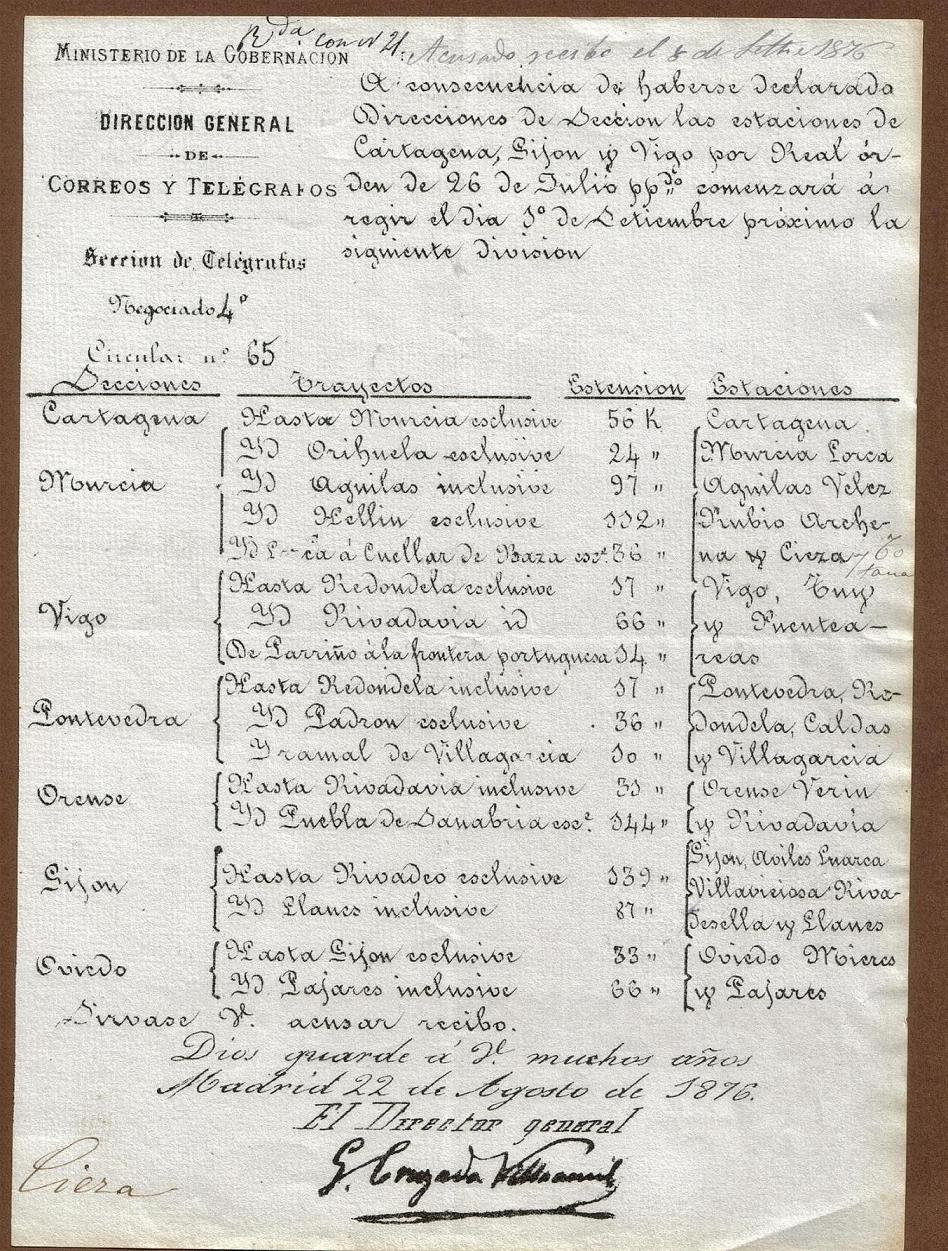 Rda con nº 21.
Acusado recibo el 8 de Sethe 1876
MINISTERIO DE LA GOBERNACION
DIRECCION GENERAL
DE
CORREOS Y TELÉGRAFOS
Seccion de Telégrafos
Negociado 4º
Circular nº 65
A consecuencia de haberse declarado
Direcciones de Seccion las estaciones de
Cartagena, Gijon y Vigo por Real ór-
den de 26 de Julio ppdo comenzará á
regir el dia 1º de Setiembre próximo la
siguiente division
Secciones Trayectos Estension Estaciones
Cartagena Hasta Murcia esclusive 56 K Cartagena.
Yd Orihuela esclusive 24 " Murcia Lorca
Murcia Yd Aguilas inclusive 97 " Aguilas Velez
Yd Hellin esclusive 112 " Rubio Arche-
Yd L ca á Cuellar de Baza esc. 36 " na y Cieza y To
tana
Hasta Redondela esclusive 17 " Vigo, Tuy
Vigo Yd Rivadavia id 66 " y Puentea-
De Parriño á la frontera portuguesa 14 " reas
Hasta Redondela inclusive 17 " Pontevedra, Re-
Pontevedra Yd Padron esclusive 36 " dondela, Caldas
Y ramal de Villagarcia 10 " y Villagarcia
Orense Hasta Rivadavia inclusive 31 " Orense Verin
Yd Puebla de Sanabria esc. 144 " y Rivadavia
Gijon, Aviles Luarca
Gijon Hasta Rivadeo esclusive 139 " Villaviciosa Riva-
Yd Llanes inclusive 87 " desella y Llanes
Oviedo Hasta Gijon esclusive 33 " Oviedo Mieres
Yd Pajares inclusive 66 " y Pajares
Sirvase V. acusar recibo.
Dios guarde á V. muchos años
Madrid 22 de Agosto de 1876.
El Director general
G. Cruzada Villaamil
Cieza